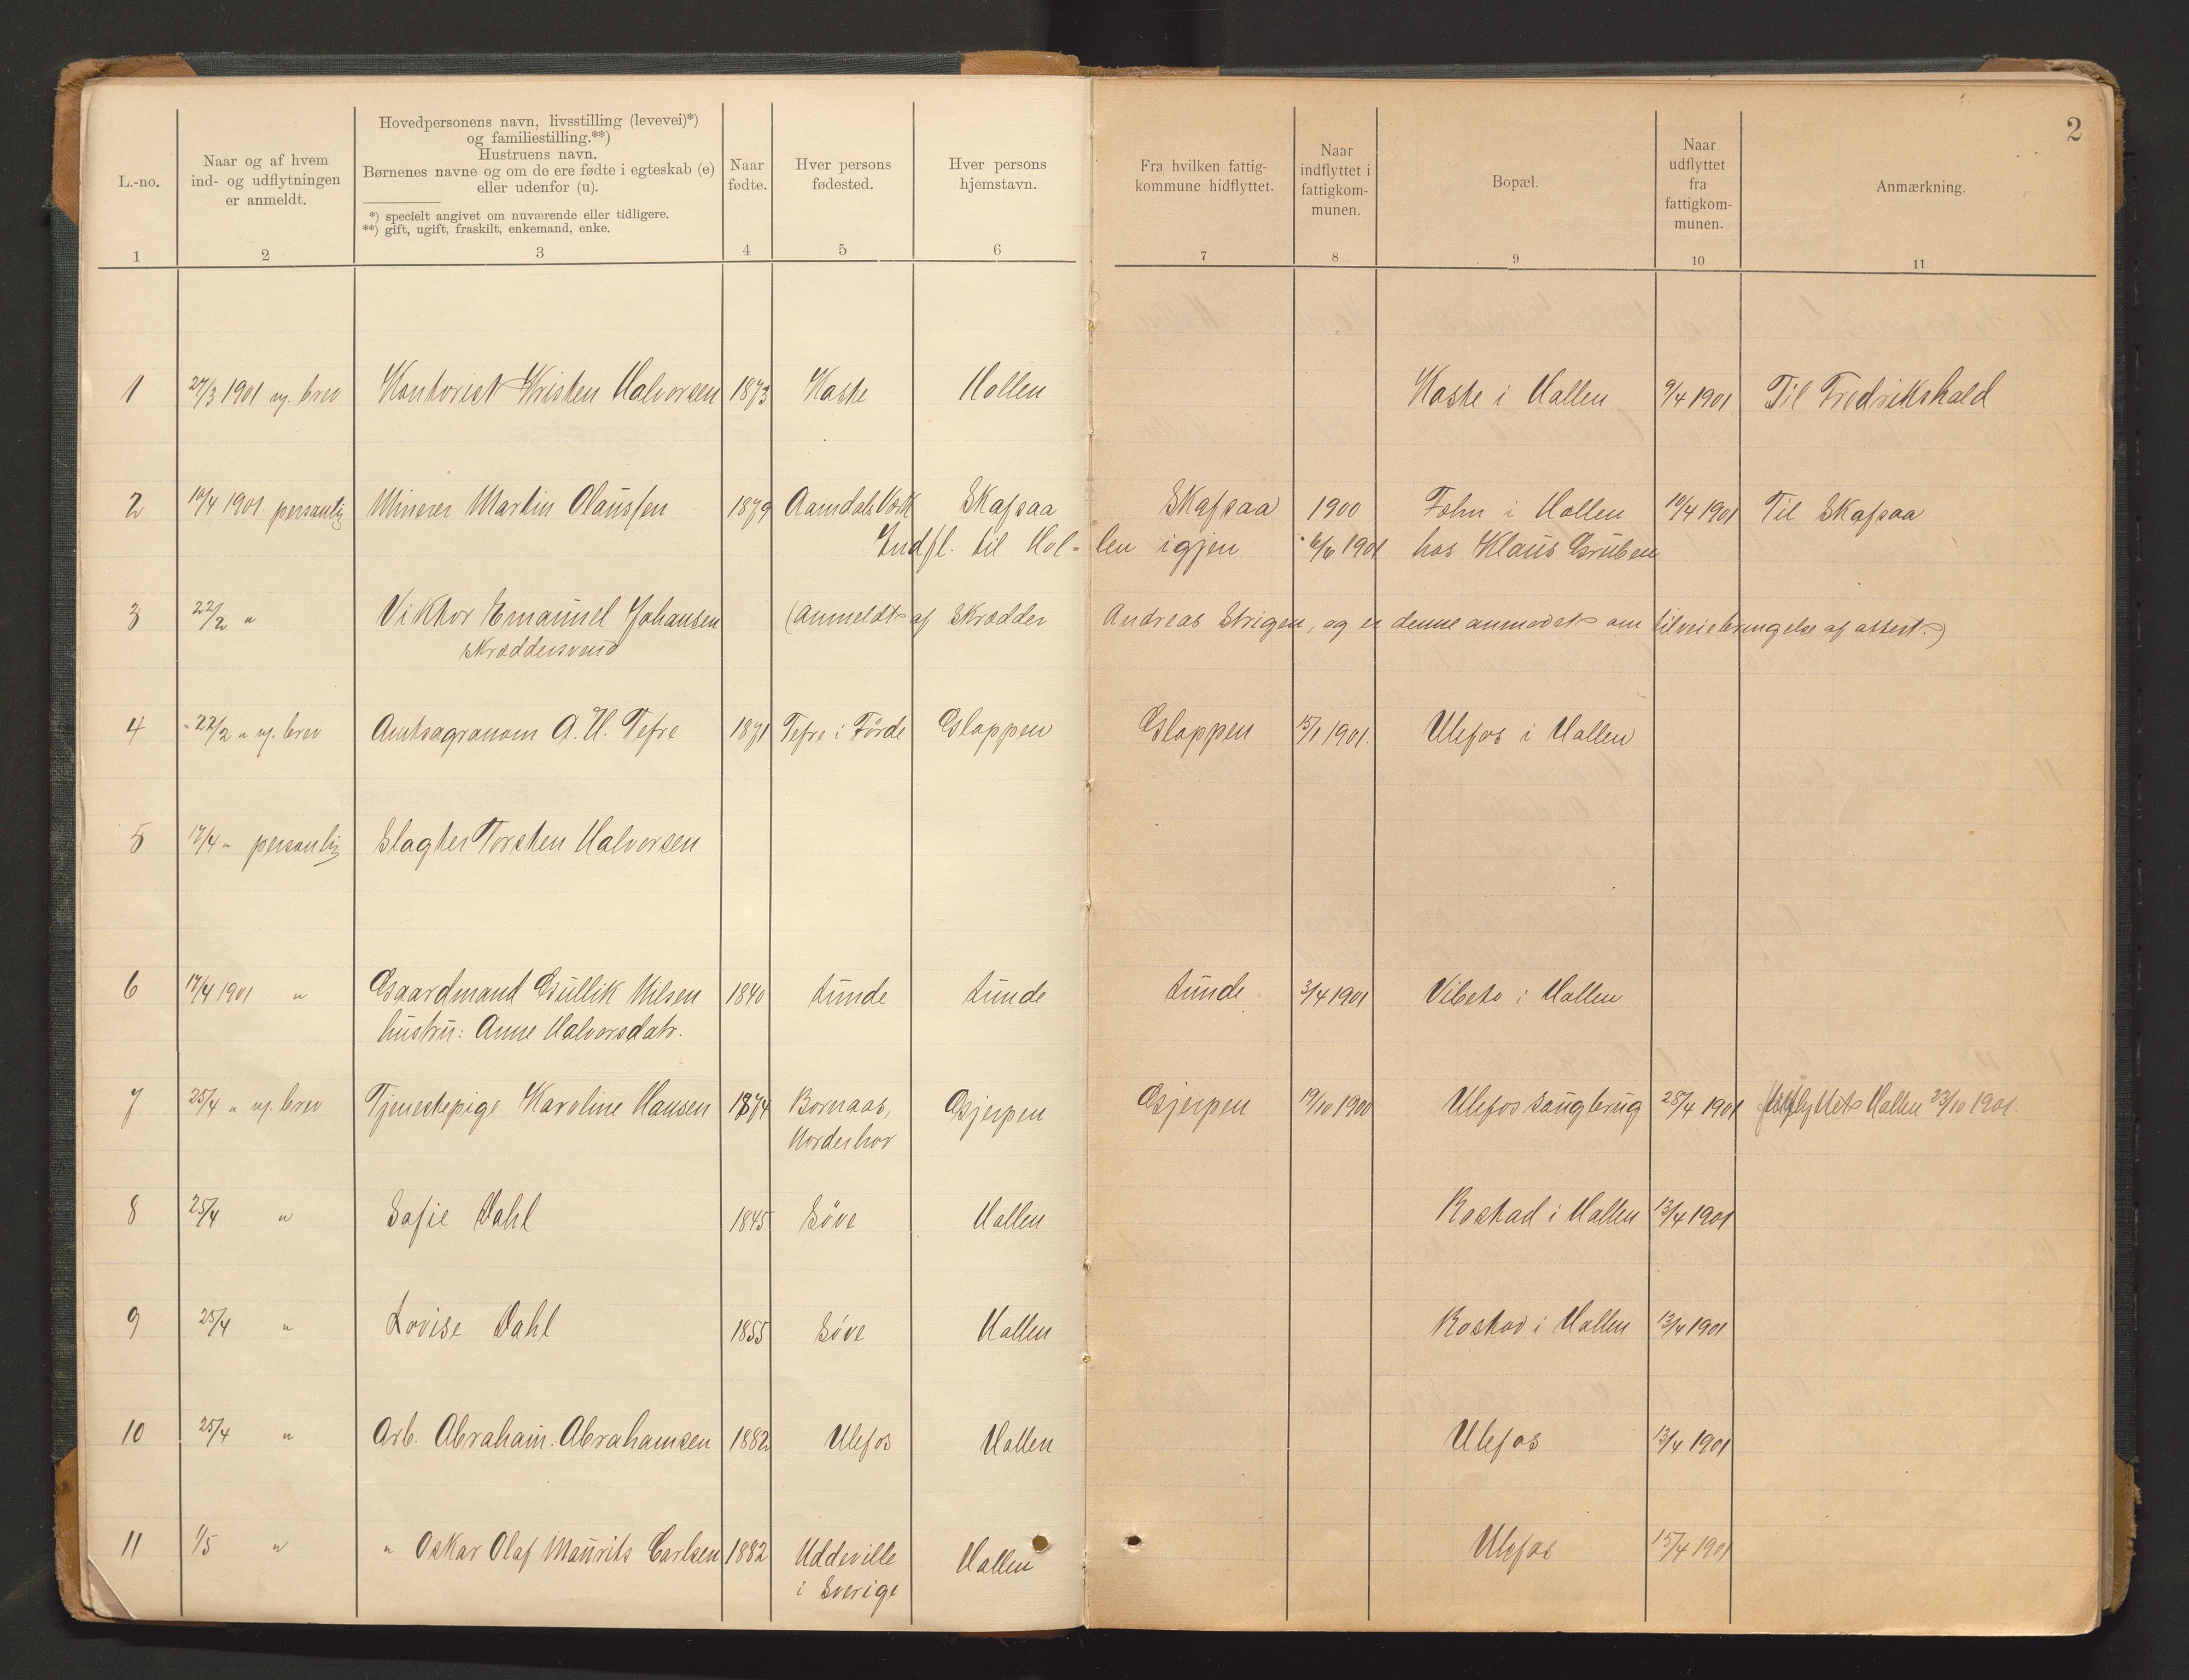 2
L.-no.
Naar og af hvem
ind- og udflytningen
er anmeldt.
Hovedpersonens navn, livsstilling (levevei)*)
og familiestilling.**)
Hustruens navn.
Børnenes navne og om de ere fødte i egteskab (e)
eller udenfor (u).
*) specielt angivet om nuværende eller tidligere.
**) gift, ugift, fraskilt, enkemand, enke.
Naar
fødte.
Hver persons
fødested.
Hver persons
hjemstavn.
Fra hvilken fattig-
kommune hidflyttet.
Naar
indflyttet i
fattigkom-
munen.
Bopæl.
Naar
udflyttet
fra
fattigkom-
munen.
Anmærkning.
1 2 3 4 5 6 7 8 9 10 11
1 27/3 1901 pr. brev Kontorist Kristen Halvorsen 1873 Kaste Hollen Kaste i Hollen 9/4 1901 Til Fredrikshald
2 10/4 1901 personlig Minerer Martin Olaussen 1879 Aamdals Værk Skafsaa Skafsaa 1900 Fehn i Hollen 10/4 1901 Til Skafsaa
Indfl. til Hol- len igjen 6/6 1901 hos Klaus Gruben
3 22/2 " Viktor Emanuel Johansen (anmeldt af Skrædder Andreas Strigen, og er denne anmodet om tilveiebringelse af attest.)
Skræddersvend
4 22/2 " pr. brev Amtsagronom A. H. Tefre 1871 Tefre i Førde Gloppen Gloppen 15/1 1901. Ulefos i Hollen
5 17/4 " personlig Slagter Torsten Halvorsen
6 17/4 1901 " Gaardmand Gullik Nilsen 1840 Lunde Lunde Lunde 3/4 1901 Vibeto i Hollen
hustru: Anne Halvorsdatr.
7 25/4 " pr. brev Tjenestepige Karoline Hansen 1874 Bornaas, Gjerpen Gjerpen 19/10 1900 Ulefos saugbrug 28/4 1901 Hollen 23/10 1901.
Norderhov
8 25/4 " Sofie Dahl 1845 Søve Hollen Rostad i Hollen 13/4 1901
9 25/4 " Lovise Dahl 1855 Søve Hollen Rostad i Hollen 13/4 1901
10 25/4 " Arb. Abraham Abrahamsen 1882 Ulefos Hollen Ulefos 13/4 1901
11 1/5 " " Oskar Olaf Maurits Carlsen 1882 Uddeville Hollen Ulefos 15/4 1901
i Sverige